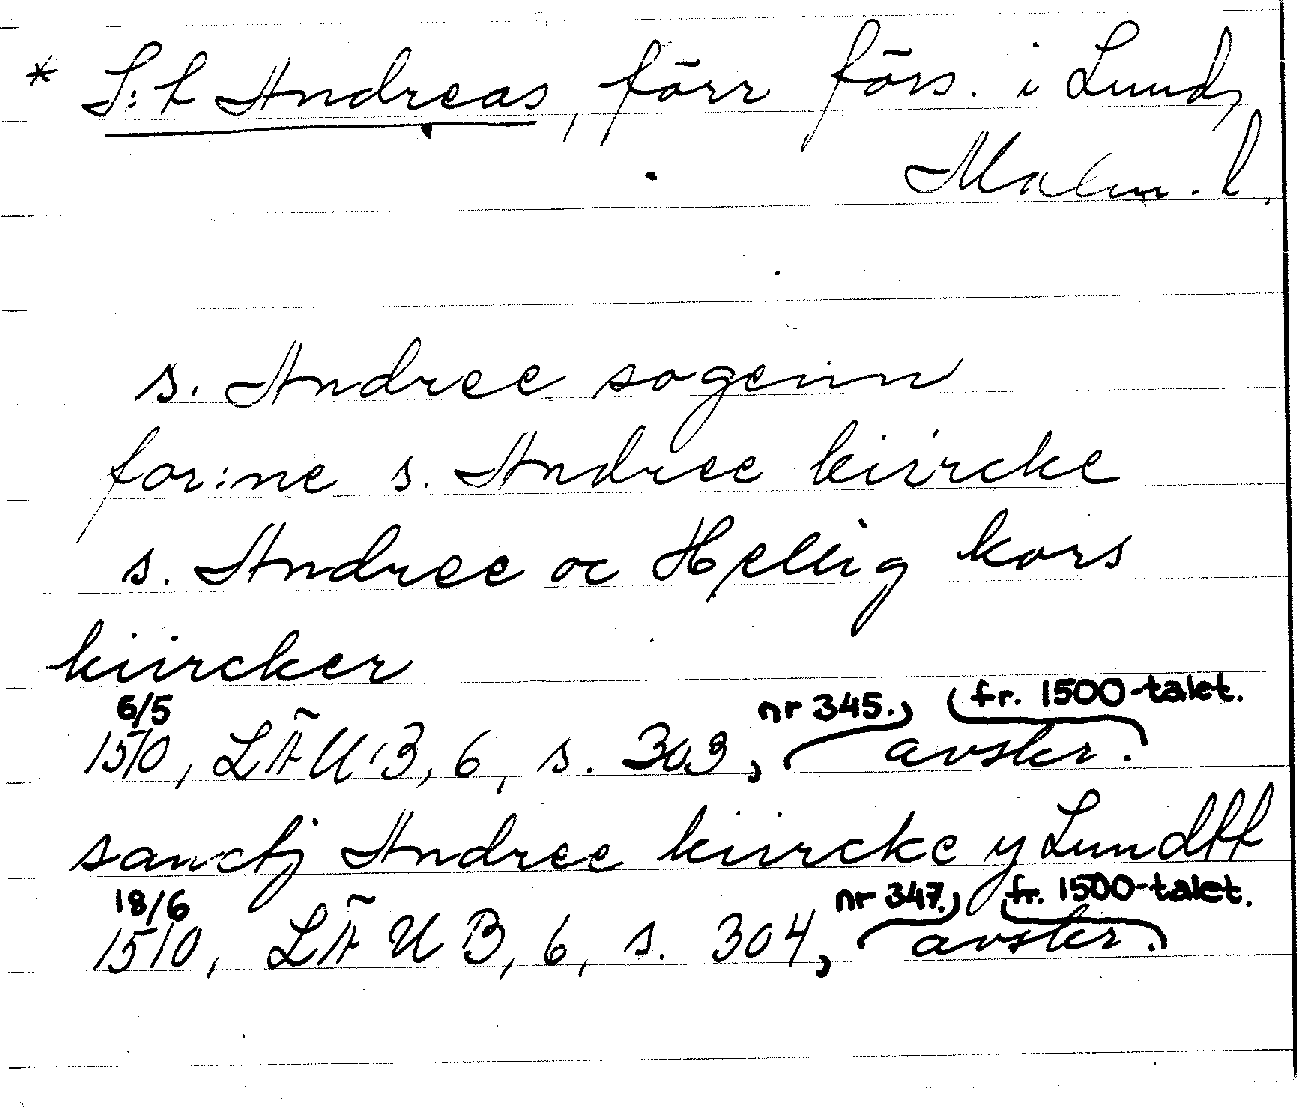 * S:t Andreas, förr förs. i Lund,
Malm. l.
s. Andree sogenn
for:ne s. Andree kiircke
s. Andree oc Hellig kors
kiircker
6/5 nr 345. fr. 1500-talet.
1510, LÄUB, 6, s. 303, avskr.
sanctj Andree kiircke y Lundtt
18/6 nr 347. fr. 1500-talet.
1510, LÄUB, 6, s. 304, avskr.